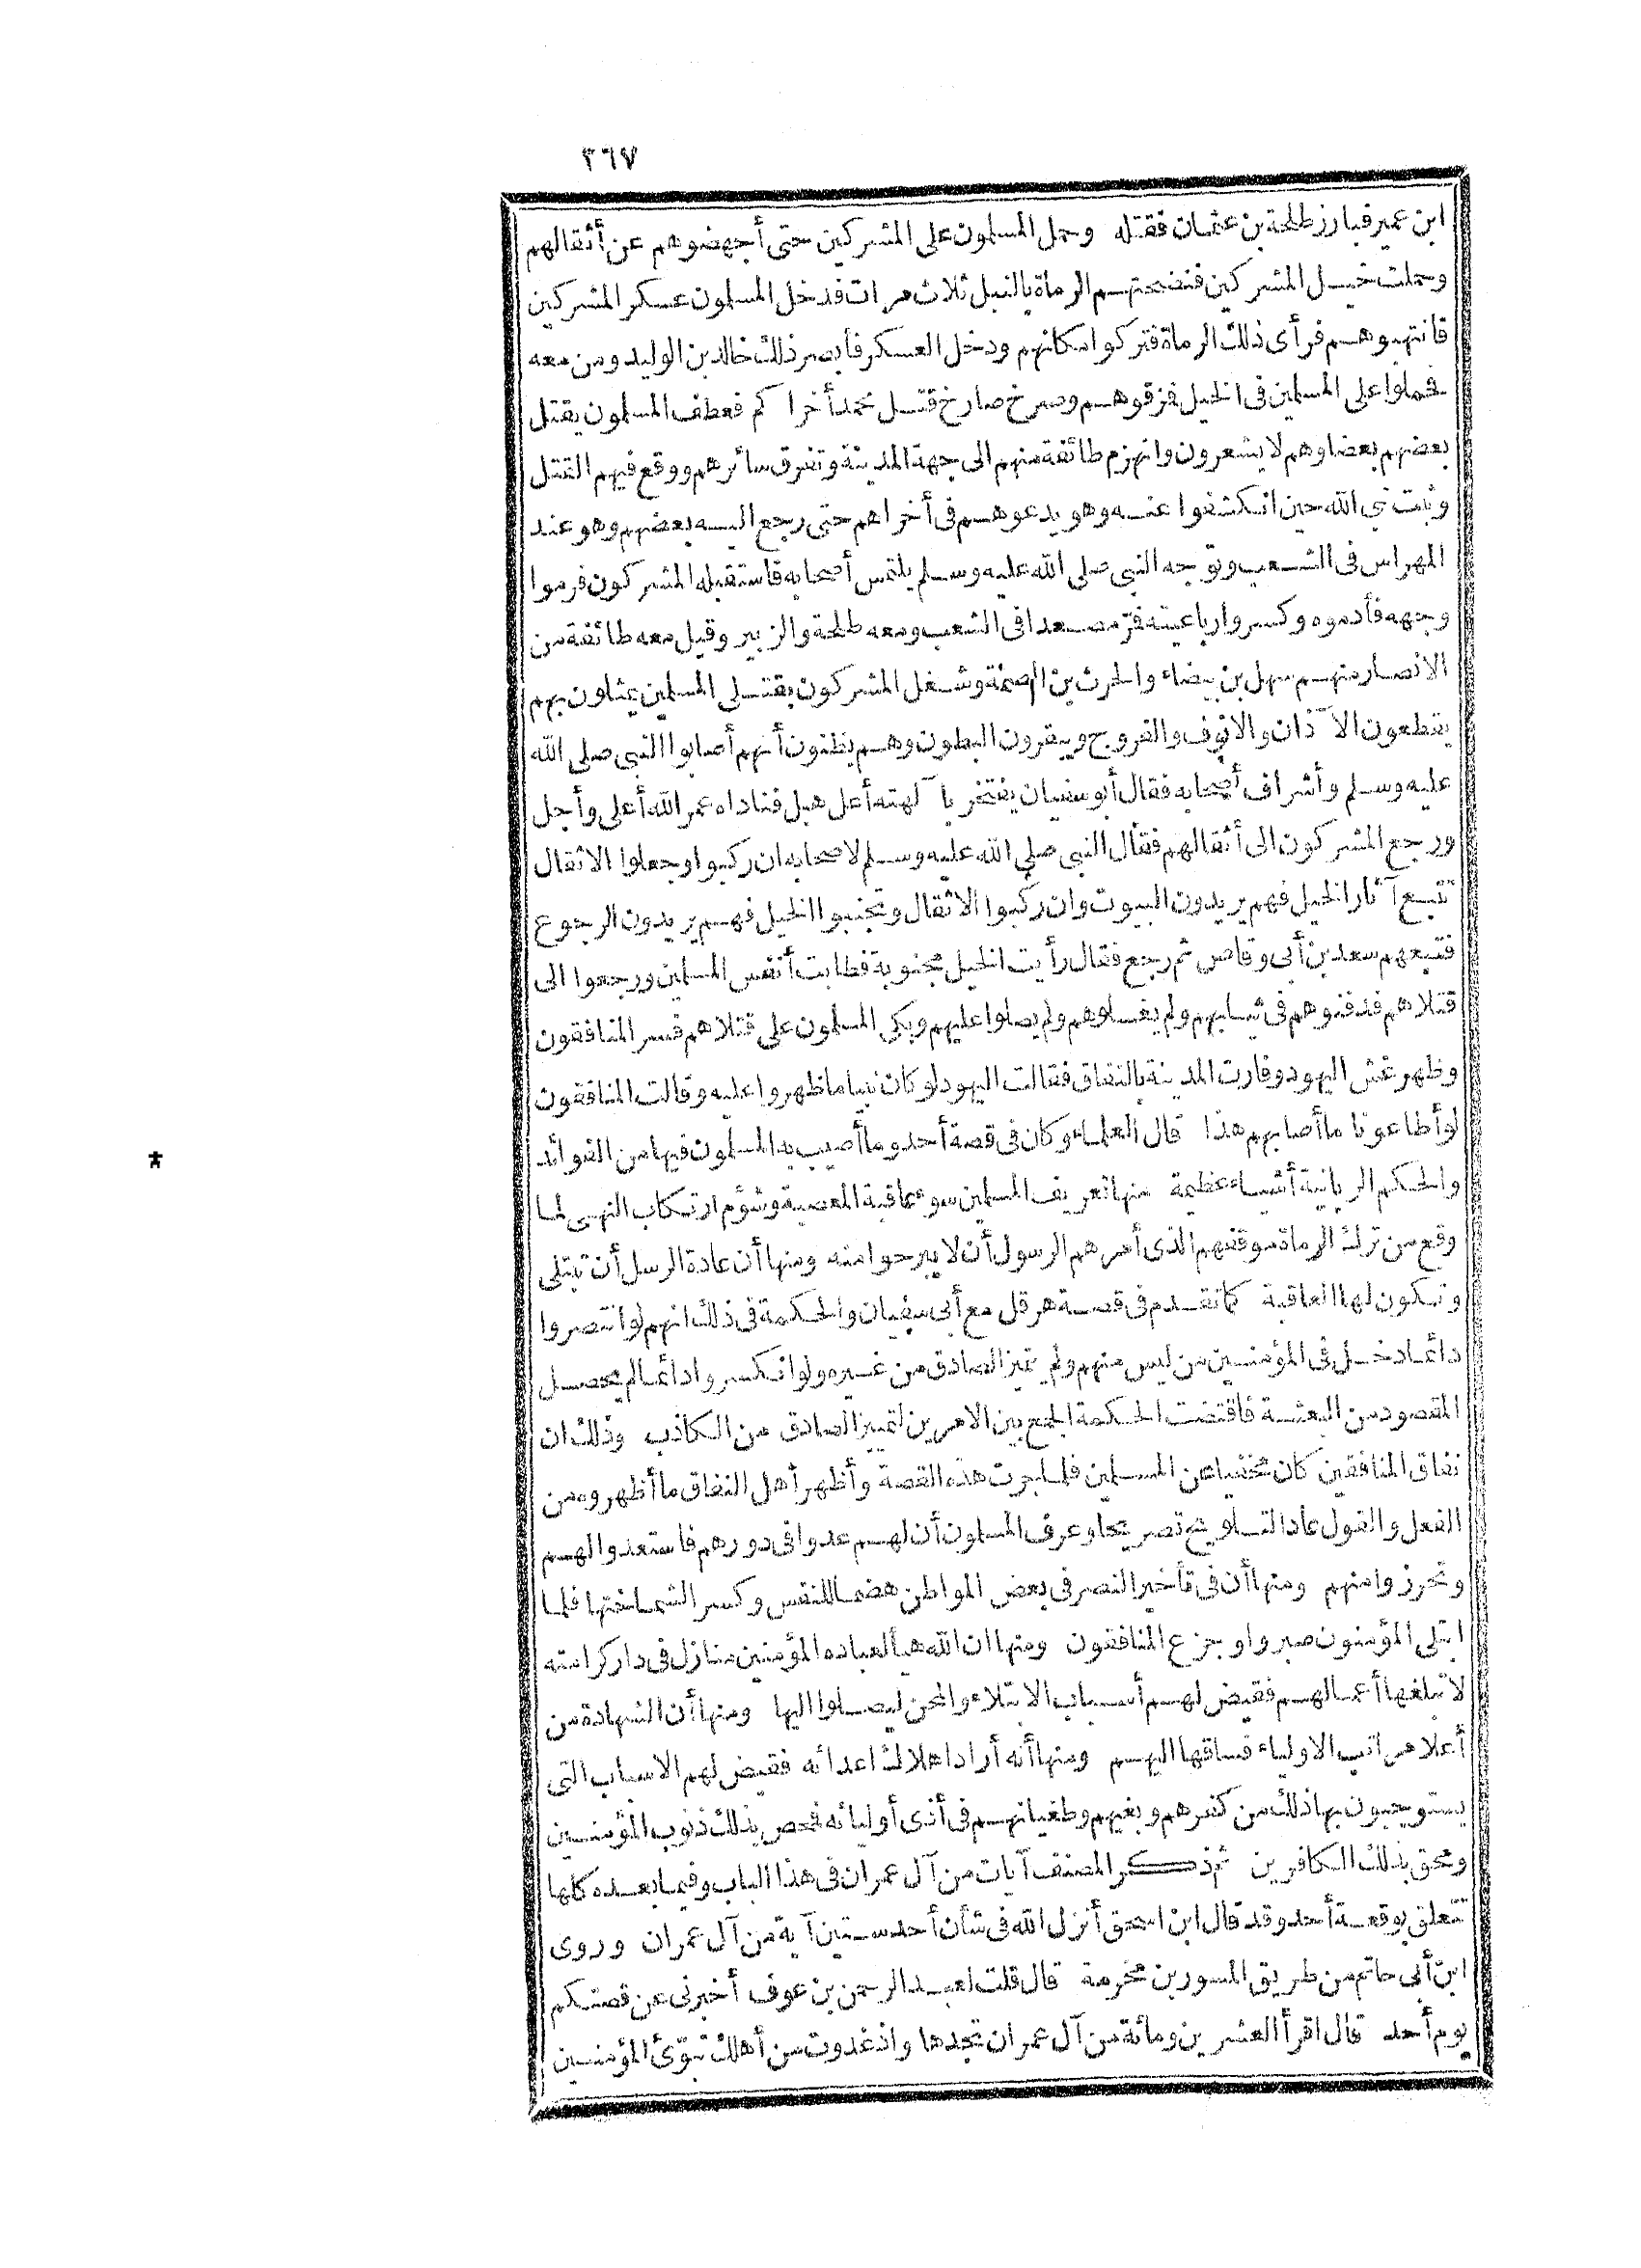 ٢٦٧
ابن عمير فبارز طلحة بن عثمان فقتله وحمل المسلمون على المشركين حتى أجهضوهم عن أثقالهم
وحملت خيل المشركين فنضحتهم الرماة بالنبل ثلاث مرات فدخل المسلمون عسكر المشركين
فانتهبوهم فرأى ذلك الرماة فتركوا مكانهم ودخل العسكر فأبصر ذلك خالد بن الوليد ومن معه
فحملوا على المسلمين فى الخيل فمزقوهم وصرخ صارخ قتل محمد أخراكم فعطف المسلمون يقتل
بعضهم بعضا وهم لا يشعرون وانهزم طائفة منهم الى جهة المدينة وتفرق سائرهم ووقع فيهم القتل
وثبت نبي الله حين انكشفوا عنه وهو يدعوهم فى أخراهم حتى رجع اليه بعضهم وهو عند
المهراس فى الشعب وتوجه النبي صلى الله عليه وسلم يلتمس أصحابه فاستقبله المشركون فرموا
وجهه فأدموه وكسروا رباعيته فمرّ مصعدا فى الشعب ومعه طلحة والزبير وقيل معه طائفة من
الانصار منهم سهل بن بيضاء والحرث بن الصمة وشغل المشركون بقتلى المسلمين يمثلون بهم
يقطعون الآذان والانوف والفروج ويبقرون البطون وهم يظنون أنهم أصابوا النبي صلى الله
عليه وسلم وأشراف أصحابه فقال أبو سفيان يفتخر بآلهته أعل هبل فناداه عمر الله أعلى وأجل
ورجع المشركون الى أثقالهم فقال النبي صلى الله عليه وسلم لاصحابه ان ركبوا وجعلوا الاثقال
تتبع آثار الخيل فهم يريدون البيوت وان ركبوا الاثقال وتجنبوا الخيل فهم يريدون الرجوع
فتبعهم سعد بن أبى وقاص ثم رجع فقال رأيت الخيل مجنوبة فطابت أنفس المسلمين ورجعوا الى
قتلاهم فدفنوهم فى ثيابهم ولم يغسلوهم ولم يصلوا عليهم وبكى المسلمون على قتلاهم فسر المنافقون
وظهر غش اليهود وفارت المدينة بالنفاق فقالت اليهود لو كان نبيا ما ظهروا عليه وقالت المنافقون
لو أطاعونا ما أصابهم هذا قال العلماء وكان فى قصة أحد وما أصيب به المسلمون فيها من الفوائد
والحكم الربانية أشياء عظيمة منها تعريف المسلمين سوء عاقبة المعصية وشؤم ارتكاب النهى لما
وقع من ترك الرماة موقفهم الذى أمرهم الرسول أن لا يبرحوا منه ومنها أن عادة الرسل أن تبتلى
وتكون لها العاقبة كما تقدم فى قصة هرقل مع أبى سفيان والحكمة فى ذلك انهم لو انتصروا
دائما دخل فى المؤمنين من ليس منهم ولم يتميز الصادق من غيره ولو انكسروا دائما لم يحصل
المقصود من البعثة فاقتضت الحكمة الجمع بين الامرين لتمييز الصادق من الكاذب وذلك ان
نفاق المنافقين كان مخفيا عن المسلمين فلما جرت هذه القصة وأظهر أهل النفاق ما أظهروه من
الفعل والقول عاد التلويح تصريحا وعرف المسلمون أن لهم عدوا فى دورهم فاستعدوا لهم
وتحرزوا منهم ومنها أن فى تأخير النصر فى بعض المواطن هضما للنفس وكسر الشماختها فلما
ابتلى المؤمنون صبروا وجزع المنافقون ومنها ان الله هيأ لعباده المؤمنين منازل فى دار كرامته
لا تبلغها أعمالهم فقيض لهم أسباب الابتلاء والمحن ليصلوا اليها ومنها أن الشهادة من
أعلا مراتب الاولياء فساقها اليهم ومنها أنه أراد اهلاك اعدائه فقيض لهم الاسباب التى
يستوجبون بها ذلك من كفرهم وبغيهم وطغيانهم فى أذى أوليائه فمحص بذلك ذنوب المؤمنين
ومحق بذلك الكافرين ثم ذكر المصنف آيات من آل عمران فى هذا الباب وفيما بعده كلها
تتعلق بوقعة أحد وقد قال ابن اسحق أنزل الله فى شأن أحد ستين آية من آل عمران وروى
ابن أبى حاتم من طريق المسور بن مخرمة قال قلت لعبد الرحمن بن عوف أخبرنى عن قصتكم
يوم أحد قال اقرأ العشرين ومائة من آل عمران تجدها واذ غدوت من أهلك تبوّئ المؤمنين